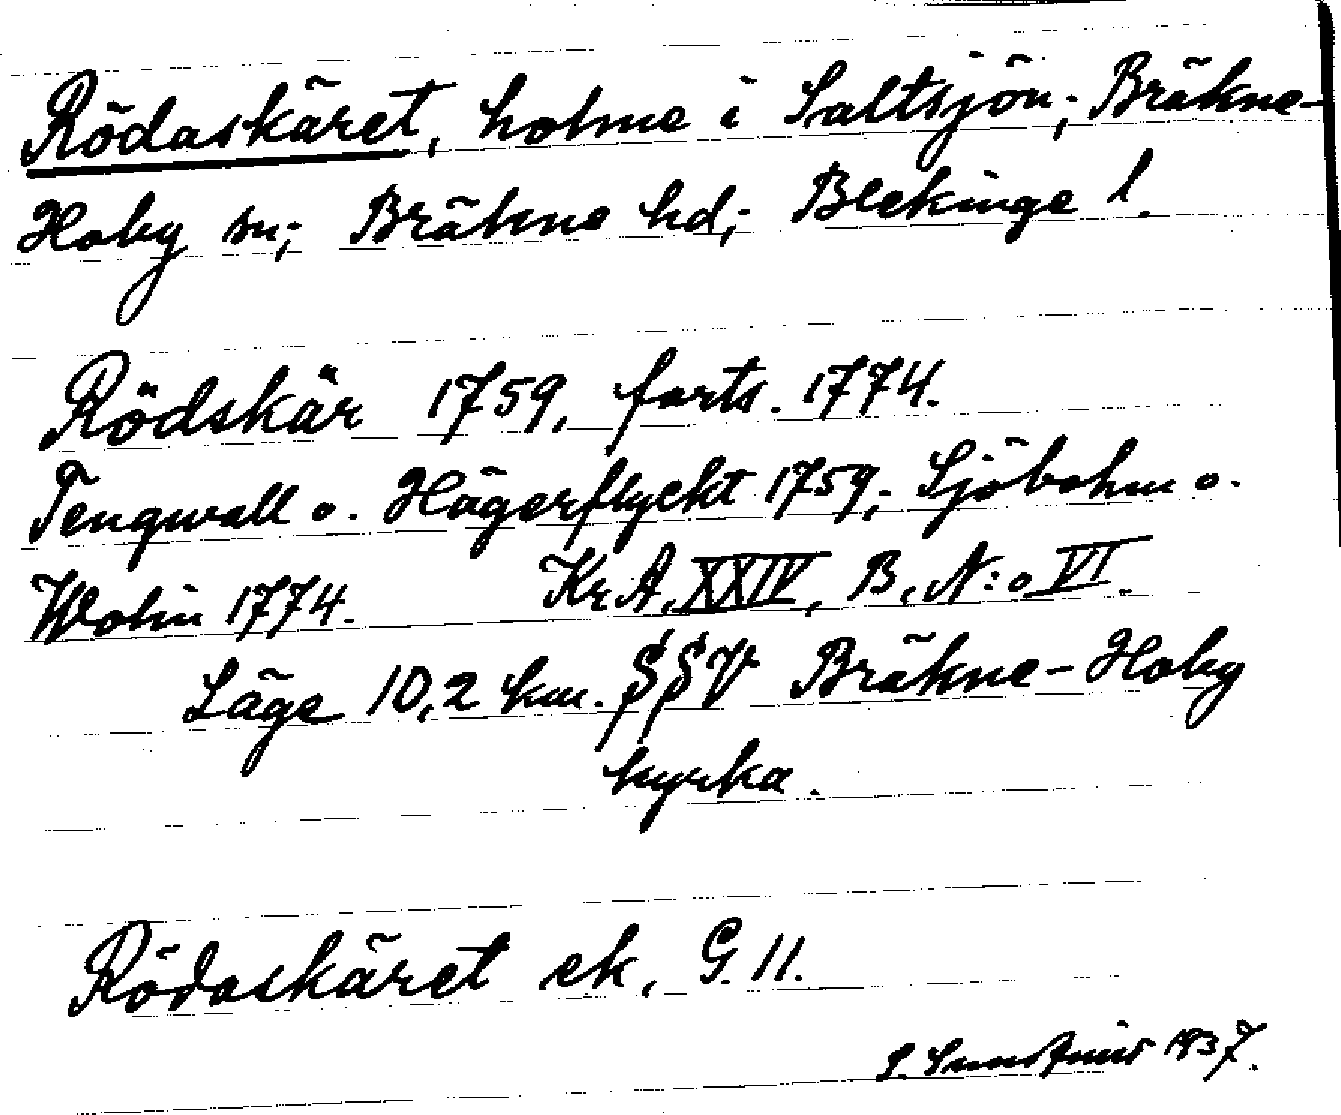 Rödaskäret, holme i Saltsjön; Bräkne-
Hoby sn; Bräkne hd; Blekinge l.
Rödskär 1759, forts. 1774.
Tengwall o. Hägerflyckt 1759; Sjöbohm o.
Wolin 1774. Kr.A. XXIV, B, N:o VI.
Läge 10,2 km. SSV Bräkne-Hoby
kyrka.
Rödaskäret ek. G. 11.
S. 1937.